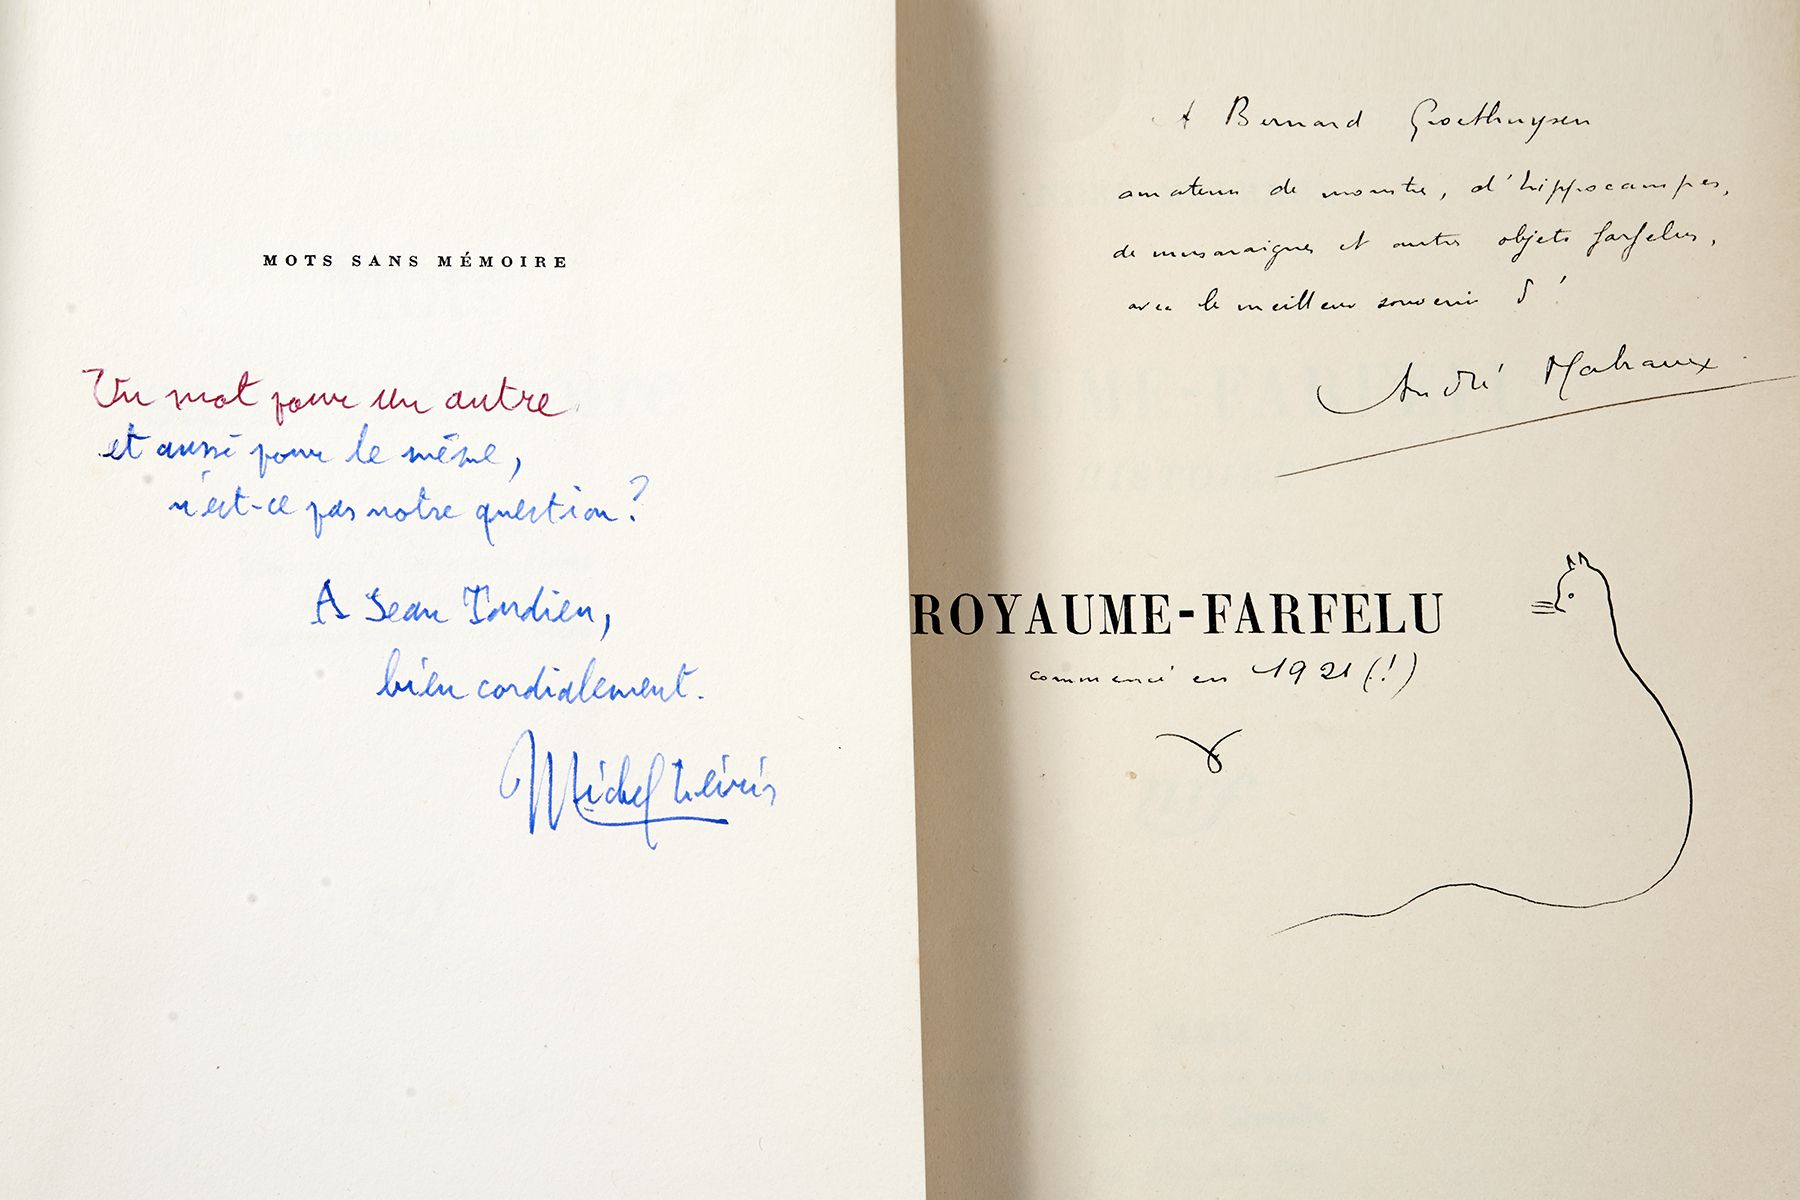 MOTS SANS MÉMOIRE
Un mot pour un autre
et aussi pour le même,
n'est-ce pas notre question?
A Jean Tardieu,
bien cordialement.
Michel Leiris
A Bernard Groethuysen
amateur de monstres, d'hippocampes,
de musaraignes et autres objets farfelus,
avec le meilleur souvenir
André Malraux
ROYAUME-FARFELU
commencé en 1921 (!)